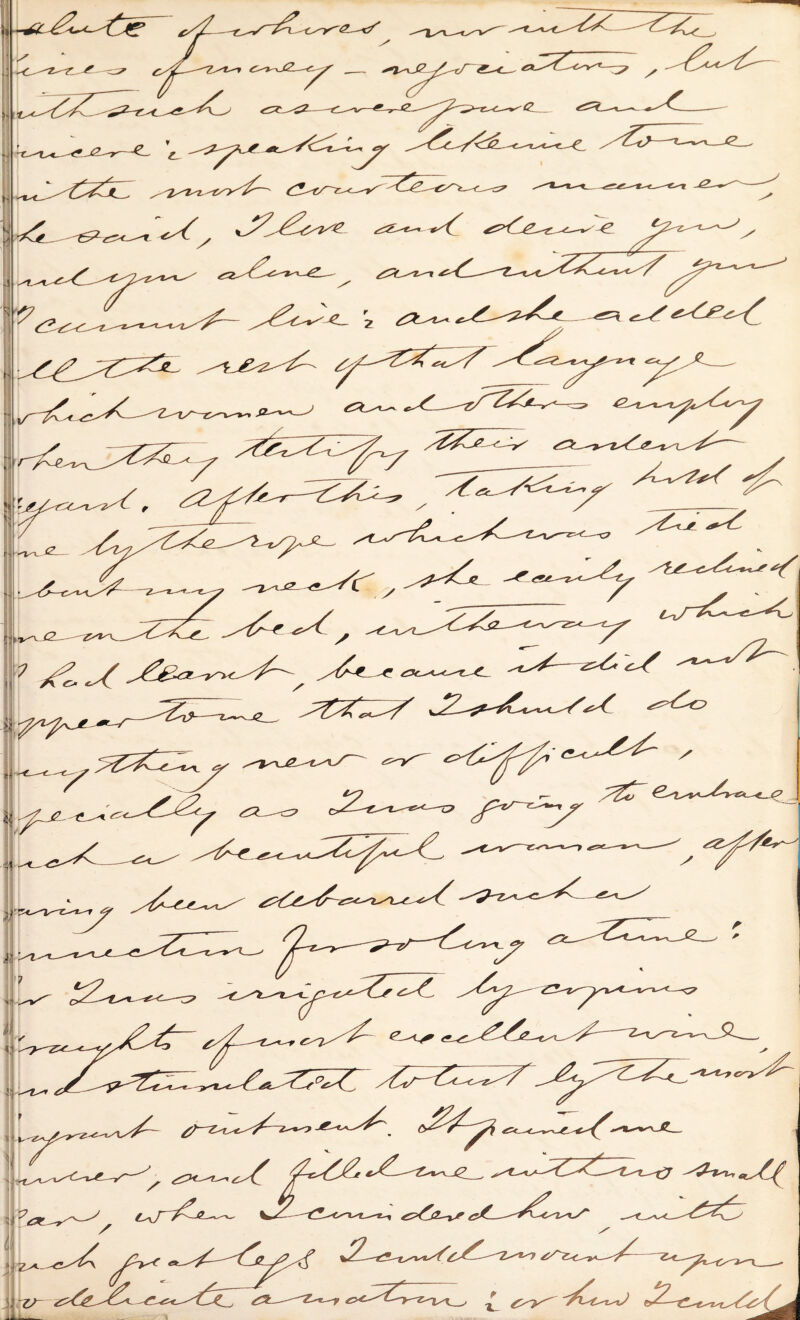 alute of whores, nor with the
isses of money-negociators, but
with such as were pure and
incere; speaking likewise to me
in the most courteous manner,
he said, I love and desire you,
and you alone, and without you
I cannot live; and she added
all the rest of that language
which women and others employ
when they testify their ardent
egard. After this, taking hold of
me by the rope which was tied
bout my neck, she easily reclined
me on the bed, in the way which
I had learnt, because it did not
ppear to me that I should do
anything new or difficult,
specially as I was going to embrace
uch a beautiful woman, after
aving been debarred such a
onnection for so long a time:
or I was irrigated by copious
raughts of most excellent wine,
and stimulated to lust by the most
ragrant ointment. It pained me
owever, and filled me with no small
ear, when I considered how, with
such great legs I could mount upon
so delicate a matron; or how I could